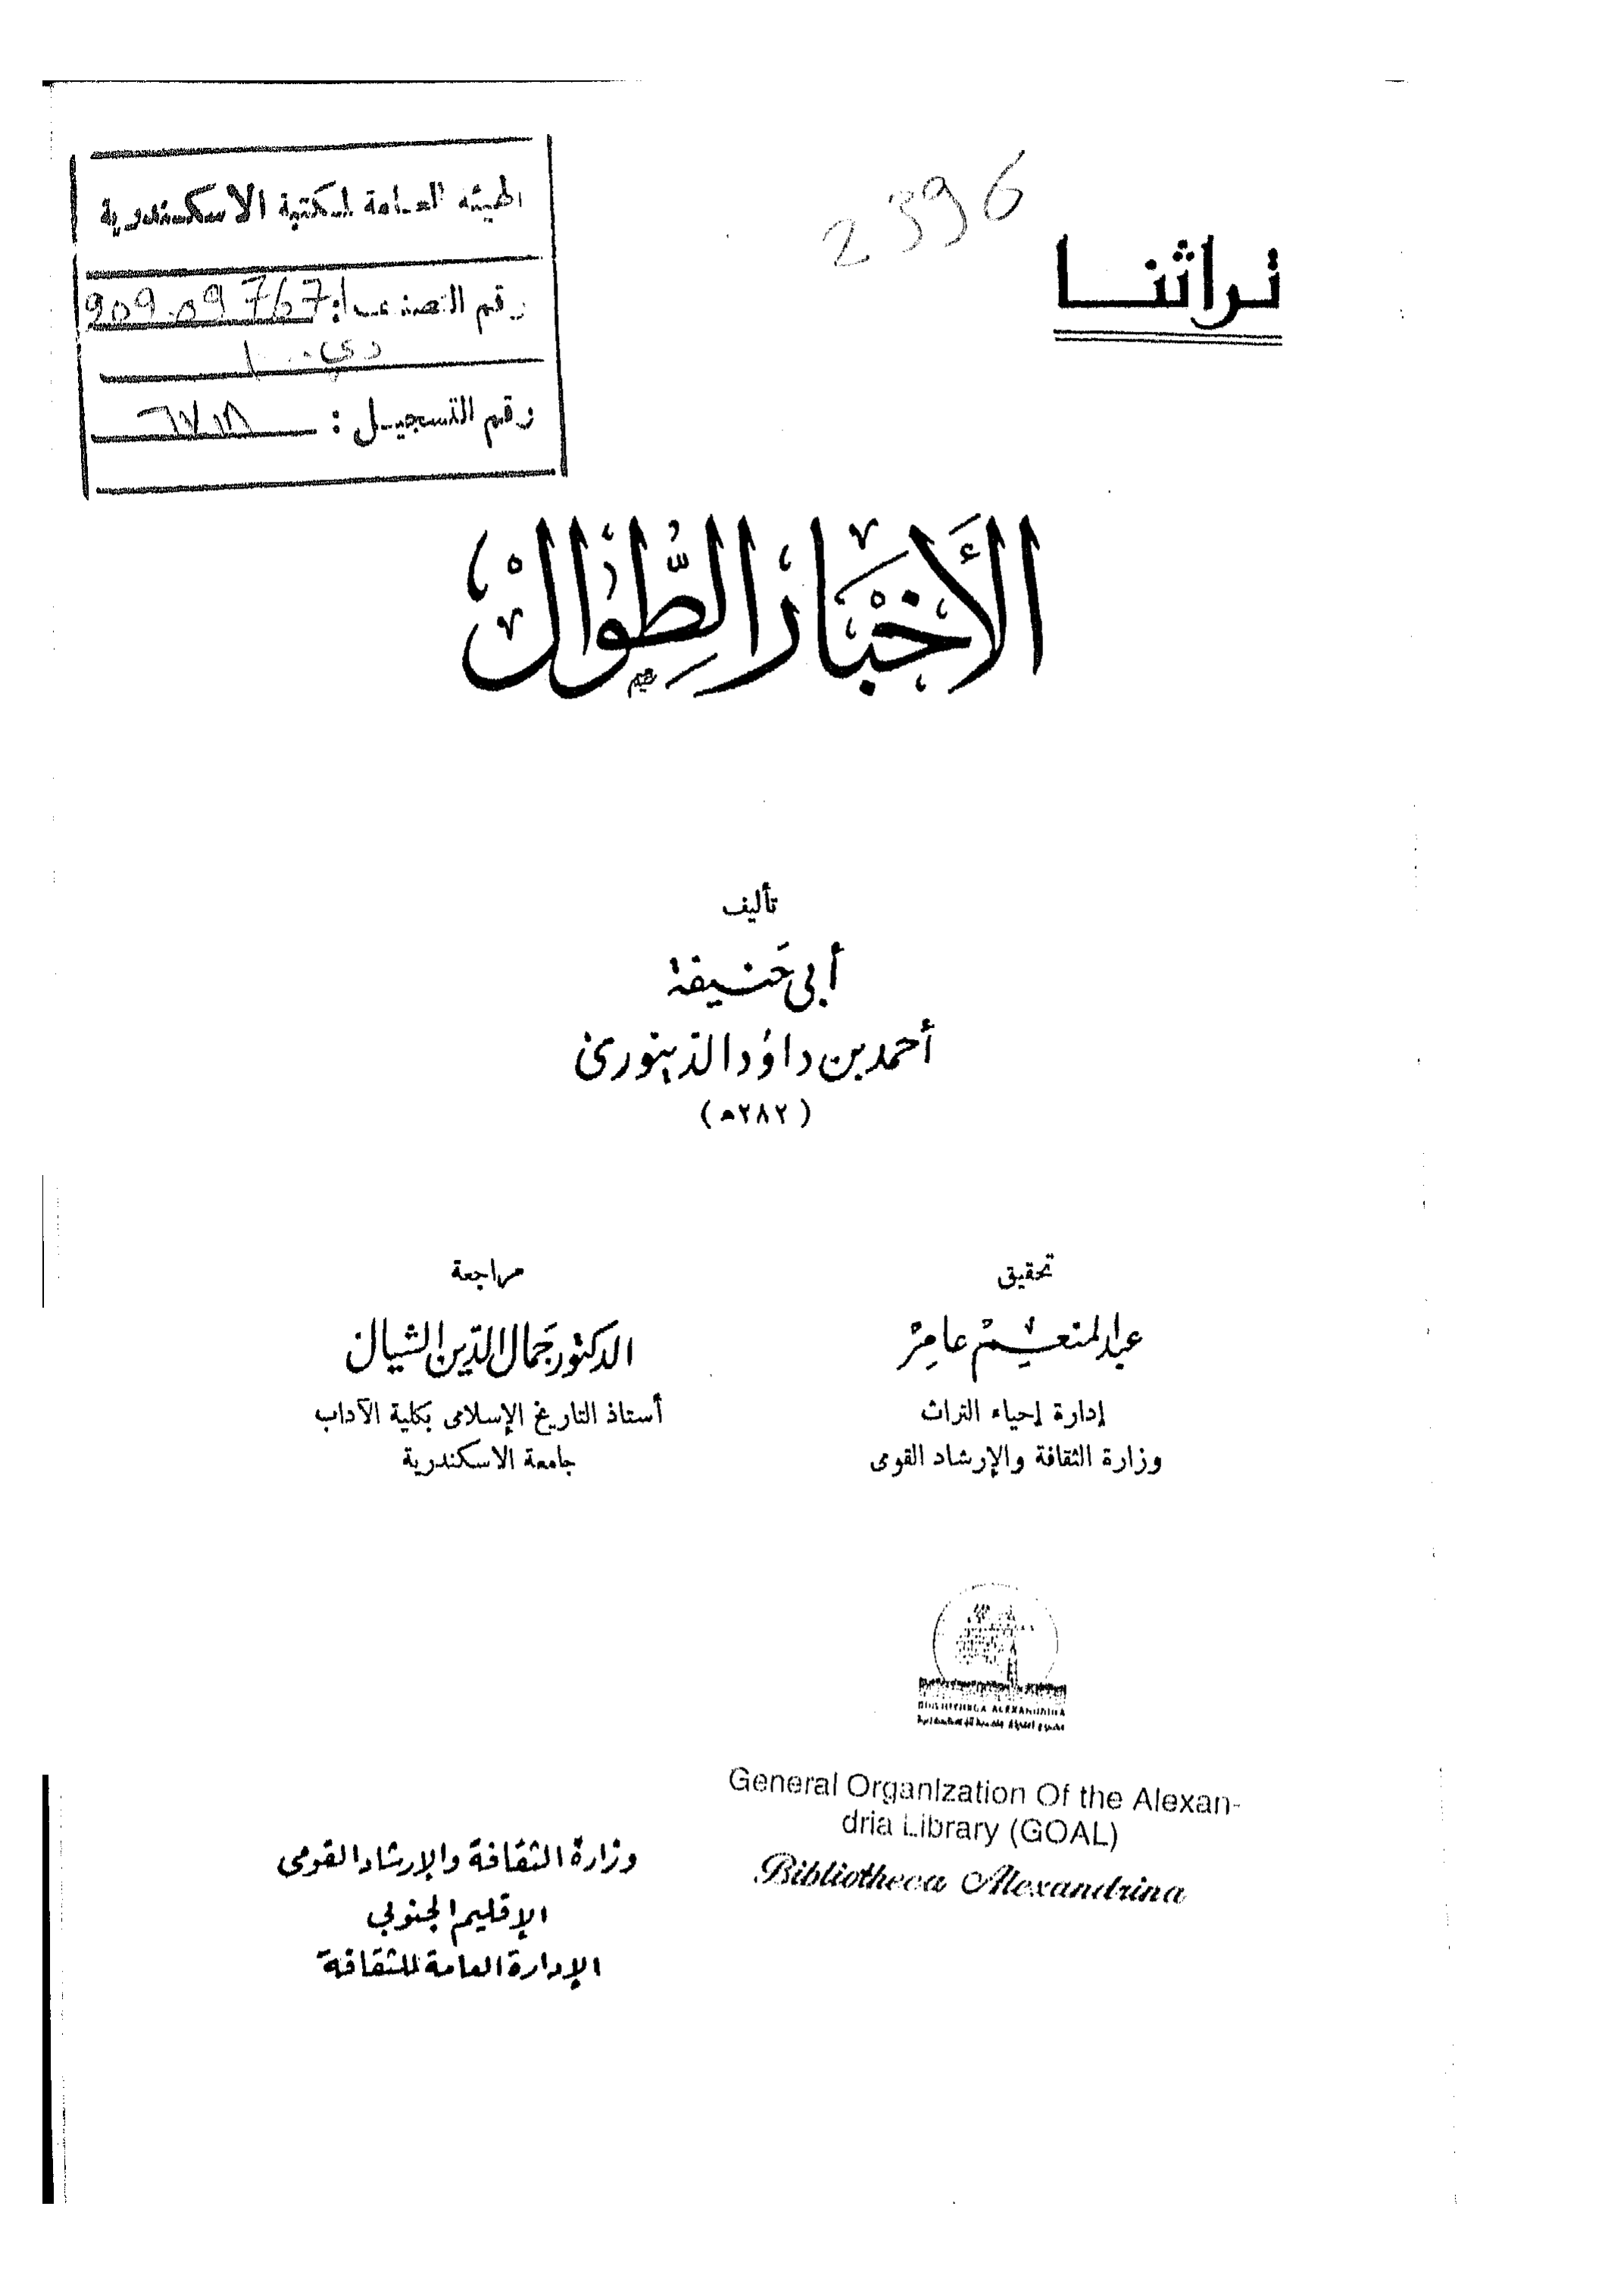 2396
تراثنا
الهيئة العامة لمكتبة الاسكندرية
رقم التصنيف: 909.09767
رقم التسجيل:
الأَخْبَار الطِّوَالْ
تأليف
أبى حَنيفة
أحمد بن داوُد الدينورى
(٢٨٢ هـ)
تحقيق
عبد المنعم عامر
إدارة إحياء التراث
وزارة الثقافة والإرشاد القومى
مراجعة
الدكتور جَمال الدّين الشيال
أستاذ التاريخ الإسلامى بكلية الآداب
جامعة الاسكندرية
BIBLIOTHECA ALEXANDRINA
General Organization Of the Alexan-
dria Library (GOAL)
Bibliotheca Alexandrina
وزارة الثقافة والإرشاد القومى
الإقليم الجنوبي
الإدارة العامة للثقافة